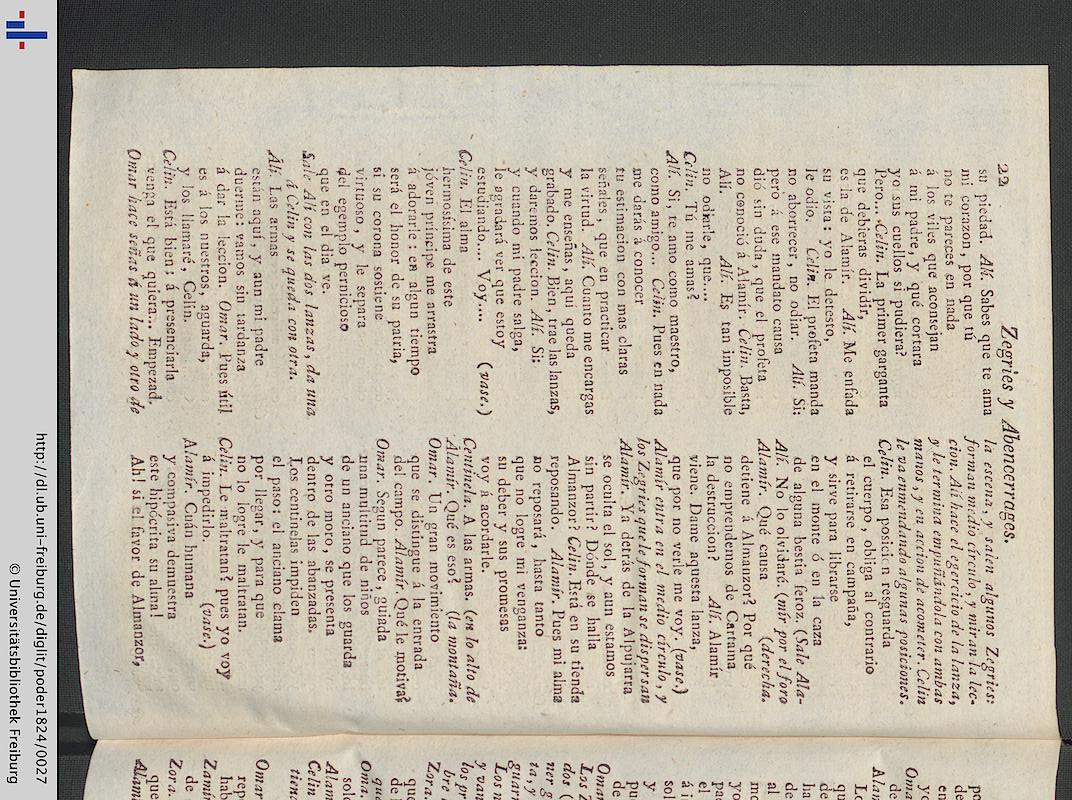 22 Zegries y Abencerrages.
su piedad. Alí. Sabes que te ama
mi corazon, por que tú
no te pareces en nada
á los viles que aconsejan
á mi padre, y qué cortara
yo sus cuellos si pudiera?
Pero... Celin. La primer garganta
que debieras dividir,
es la de Alamír. Alí. Me enfada
su vista: yo le detesto,
le odio. Celin. El profeta manda
no aborrecer, no odiar. Alí. Si:
pero á ese mandato causa
dió sin duda, que el profeta
no conoció á Alamir. Celin. Basta,
Alí. Alí. Es tan imposible
no odiarle, que....
Celin. Tú me amas?
Alí. Si, te amo como maestro,
como amigo... Celin. Pues en nada
me darás á conocer
tu estimacion con mas claras
señales, que en practicar
la virtud. Alí. Cuanto me encargas
y me enseñas, aquí queda
grabado. Celin. Bien, trae las lanzas,
y daremos leccion. Alí. Si:
y cuando mi padre salga,
le agradará ver que estoy
estudiando.... Voy.... (vase.)
Celin. El alma
hermosísima de este
jóven príncipe me arrastra
á adorarle: en algun tiempo
será el honor de su patria,
si su corona sostiene
virtuoso, y le separa
del egemplo pernicioso
que en el dia ve.
Sale Alí con las dos lanzas, da una
á Celin y se queda con otra.
Alí. Las armas
están aquí, y aun mi padre
duerme: vamos sin tardanza
á dar la leccion. Omar. Pues útil
es á los nuestros, aguarda,
y los llamaré, Celin.
Celin. Está bien: á presenciarla
venga el que quiera... Empezad.
Omar hace señas á un lado y otro de
la escena, y salen algunos Zegries:
forman medio círculo, y miran la lec-
cion. Alí hace el egercicio de la lanza,
y le termina empuñándola con ambas
manos, y en accion de acometer. Celin
le va enmendando algunas posiciones.
Celin. Esa posici n resguarda
el cuerpo, obliga al contrario
á retirarse en campaña,
y sirve para librarse
en el monte ó en la caza
de alguna bestia feroz. (Sale Ala-
Alí. No lo olvidaré. (mir por el foro
Alamir. Qué causa (derecha.
detiene á Almanzor? Por qué
no emprendemos de Cartama
la destruccion? Alí. Alamír
viene. Dame aquesta lanza,
que por no verle me voy. (vase.)
Alamir entra en el medio círculo, y
los Zegries que le forman se dispersan
Alamir. Ya detrás de la Alpujarra
se oculta el sol, y aun estamos
sin partir? Dónde se halla
Almanzor? Celin. Está en su tienda
reposando. Alamir. Pues mi alma
no reposará, hasta tanto
que no logre mi venganza:
su deber y sus promesas
voy á acordarle.
Centinela. A las armas. (en lo alto de
Alamir. Qué es eso? (la montaña.
Omar. Un gran movimiento
que se distingue á la entrada
del campo. Alamír. Qué le motiva?
Omar. Segun parece, guiada
una multitud de niños
de un anciano que los guarda
y otro moro, se presenta
dentro de las abanzadas.
Los centinelas impiden
el paso: el anciano clama
por llegar, y para que
no lo logre le maltratan.
Celin. Le maltratan? pues yo voy
á impedirlo. (vase.)
Alamir. Cuán humana
y compasiva demuestra
este hipócrita su alma!
Ah! si el favor de Almanzor,
http://dl.ub.uni-freiburg.de/diglit/poder1824/0027
© Universitätsbibliothek Freiburg